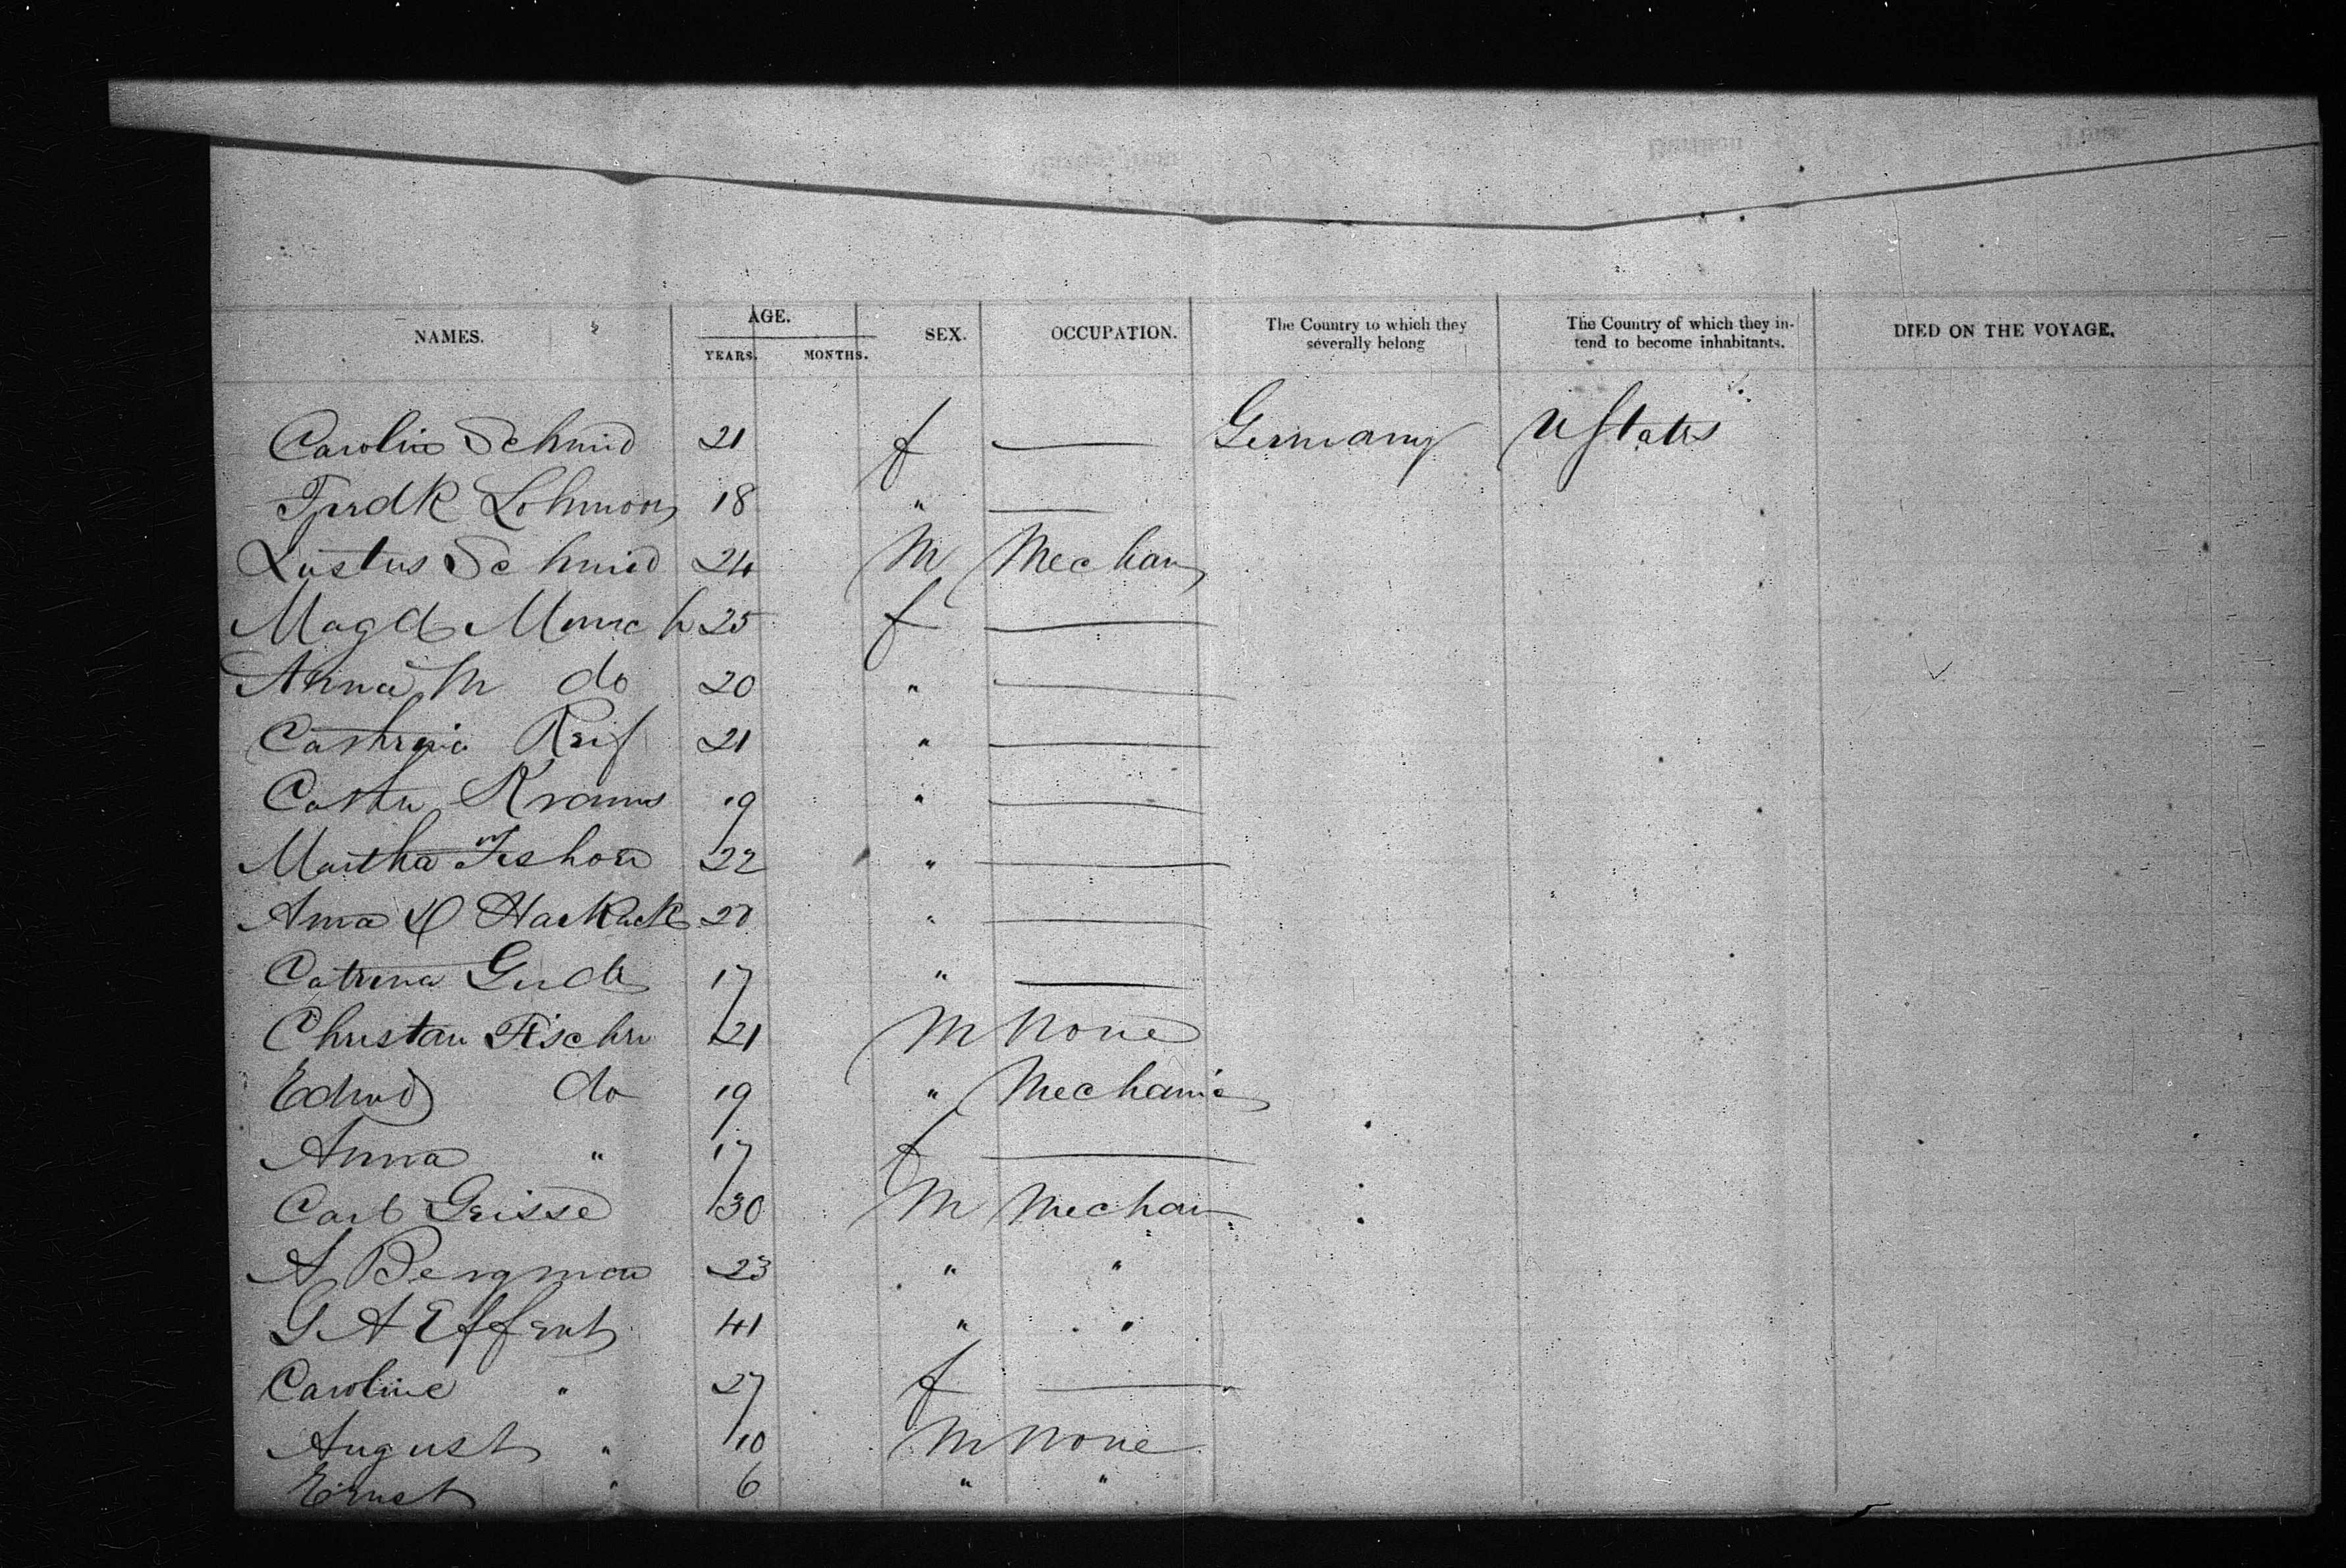 NAMES. AGE. SEX. OCCUPATION. The Country to which they severally belong The Country of which they intend to become inhabitants. DIED ON THE VOYAGE.
YEARS. MONTHS.
Carolin Schmid 21 f — Germany U States
Fredk Lohmon 18 " —
Lustus Schmid 24 M Mechan
Magd 25 f —
Anna M do 20 " —
Reif 21 " —
19 " —
Martha 22 " —
Anna 20 " —
Catrina Gude 17 " —
Christan Fischer 21 M None
Edwd do 19 " Mechanic
Anna " 17 f —
Carl Geisse 30 M Mechan
A Bergman 23 " "
G A Effent 41 " "
Caroline " 27 f —
August " 10 M None
Ernst " 6 " "